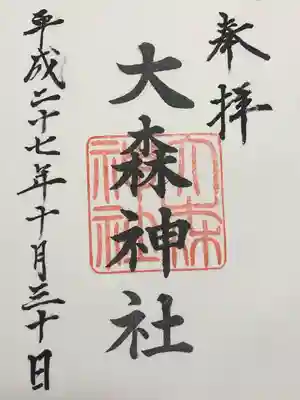 奉拝
大森神社
大森
神社
平成二十七年十月三十日